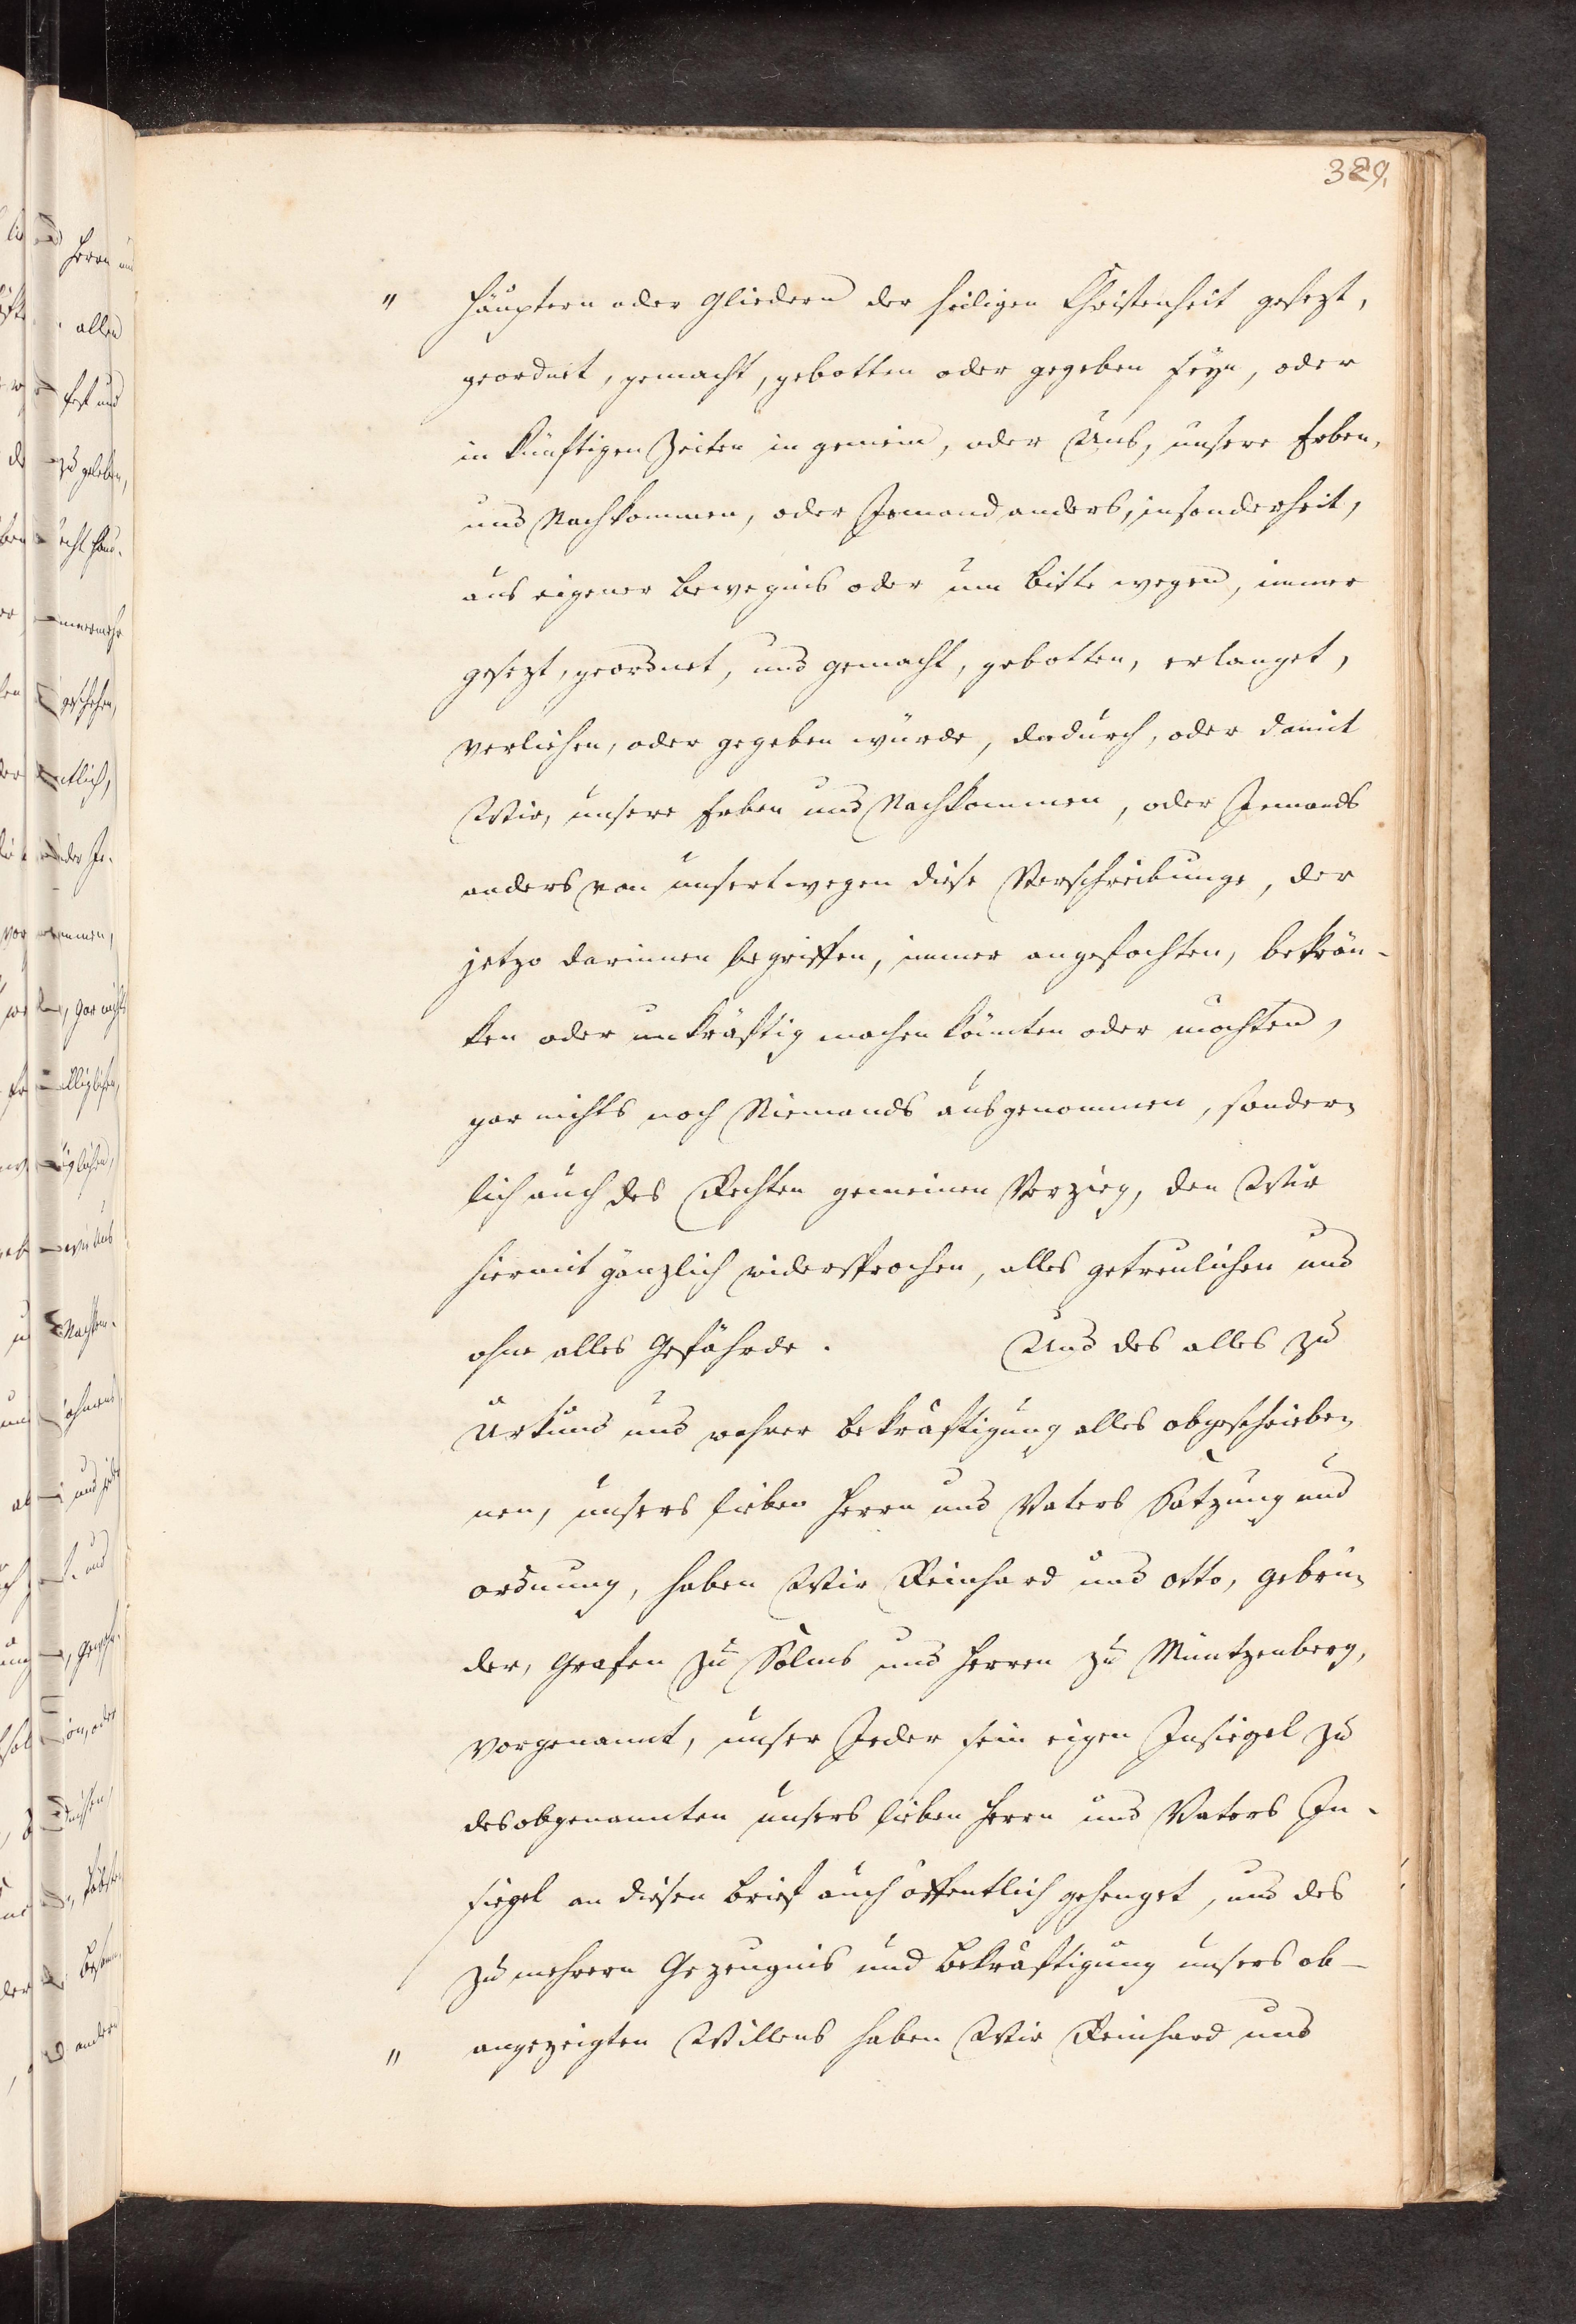 329.
" häuptern oder Gliedern der heiligen Christenheit gesezt,
geordnet, gemacht, gebotten oder gegeben seyn, oder
in künftigen Zeiten in gemein, oder Uns, unsere Erben,
und Nachkommen, oder Jemand anders, insonderheit,
aus eigener bewegnis oder um bitte wegen, immer
gesezt, geordnet, und gemacht, gebotten, erlanget,
verliehen, oder gegeben würde, dadurch, oder damit
Wir, unsere Erben und Nachkommen, oder Jemands
anders von unsertwegen diese Verschreibunge, der
jetzo darinnen begriffen, immer angefochten, bekrän-
ken oder unkräftig machen könnten oder mochten,
gar nichts noch Niemands ausgenommen, sonder-
lich auch des Rechten gemeinen Verzieg, den Wir
hiermit gänzlich widersprochen, alles getreulichen und
ohne alles Gefährde. Und des alles zu
Urkund und wahrer bekräftigung alles obgeschriebe-
nen, unsers lieben Herrn und Vaters Satzung und
ordnung, haben Wir Reinhard und Otto, gebrü-
der, Grafen zu Solms und Herren zu Müntzenberg,
vorgenannt, unser Jeder sein eigen Insiegel zu
des obgenannten unsers lieben Herrn und Vaters In-
siegel an diesen brief auch öffentlich gehenget, und des
zu mehrern Gezeugnis und bekräftigung unsers ob-
" angezeigten Willens haben Wir Reinhard und